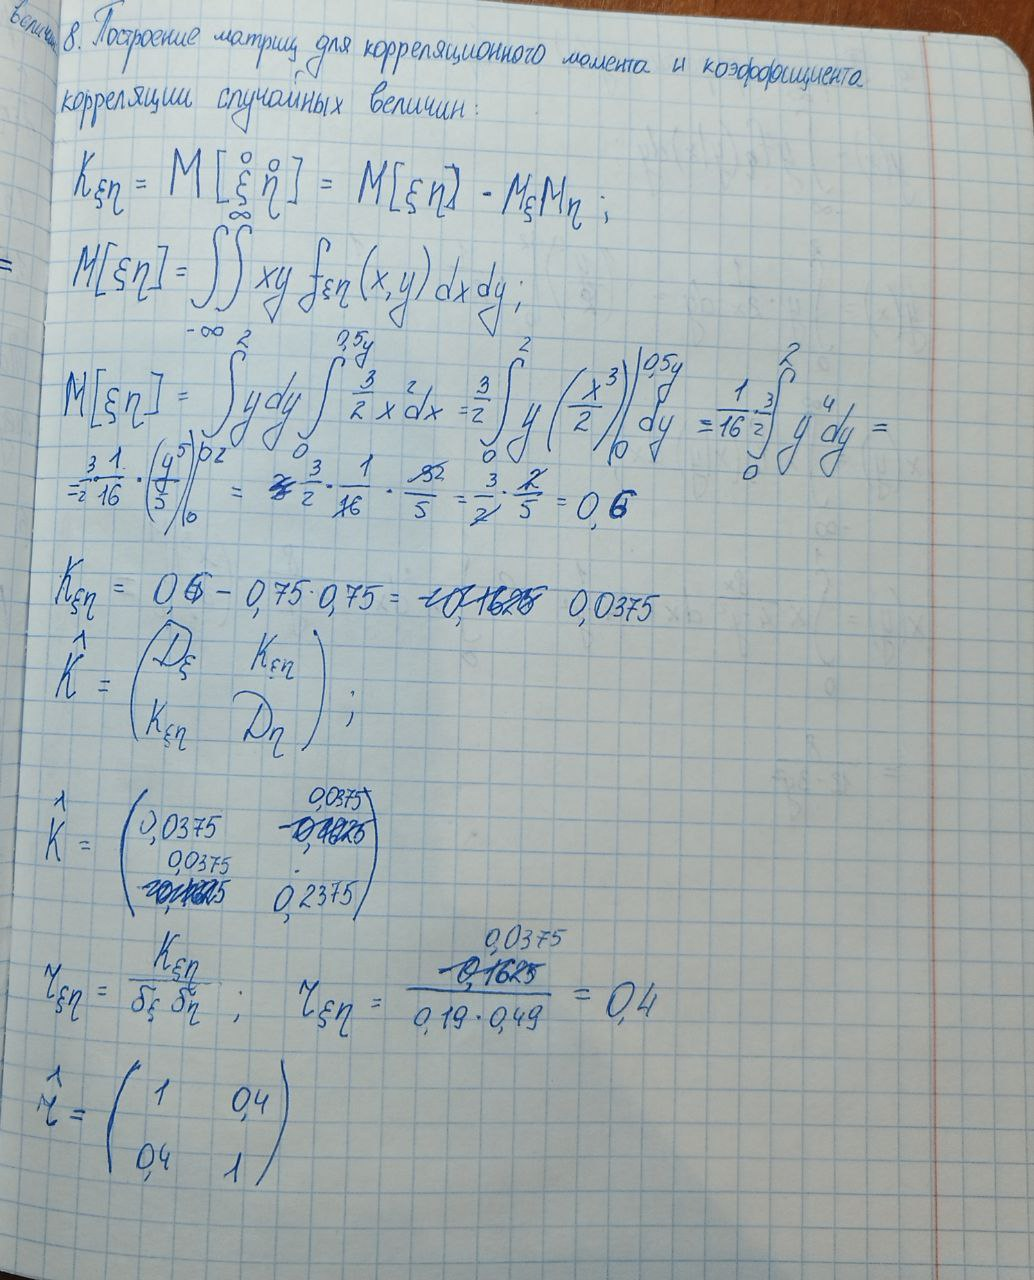 величин
8. Построение матриц для корреляционного момента и коэффициента
корреляции случайных величин:
K_ξη = M[ξ̊ η̊] = M[ξη] - M_ξ M_η ;
=
M[ξη] = ∫∫_{-∞}^{∞} xy f_ξη (x,y) dx dy ;
M[ξη] = ∫_0^2 y dy ∫_0^{0,5y} 3/2 x^2 dx = 3/2 ∫_0^2 y (x^3/2)|_0^{0,5y} dy = 1/16 · 3/2 ∫_0^2 y^4 dy =
= 3/2 · 1/16 · (y^5/5)|_0^2 = 3/2 · 1/16 · 32/5 = 3/2 · 2/5 = 0,6
K_ξη = 0,6 - 0,75 · 0,75 = 0,0375
K̂ = (D_ξ K_ξη
K_ξη D_η) ;
K̂ = (0,0375 0,0375
0,0375 0,2375)
r_ξη = K_ξη / σ_ξ σ_η ; r_ξη = 0,0375 / 0,19 · 0,49 = 0,4
r̂ = (1 0,4
0,4 1)